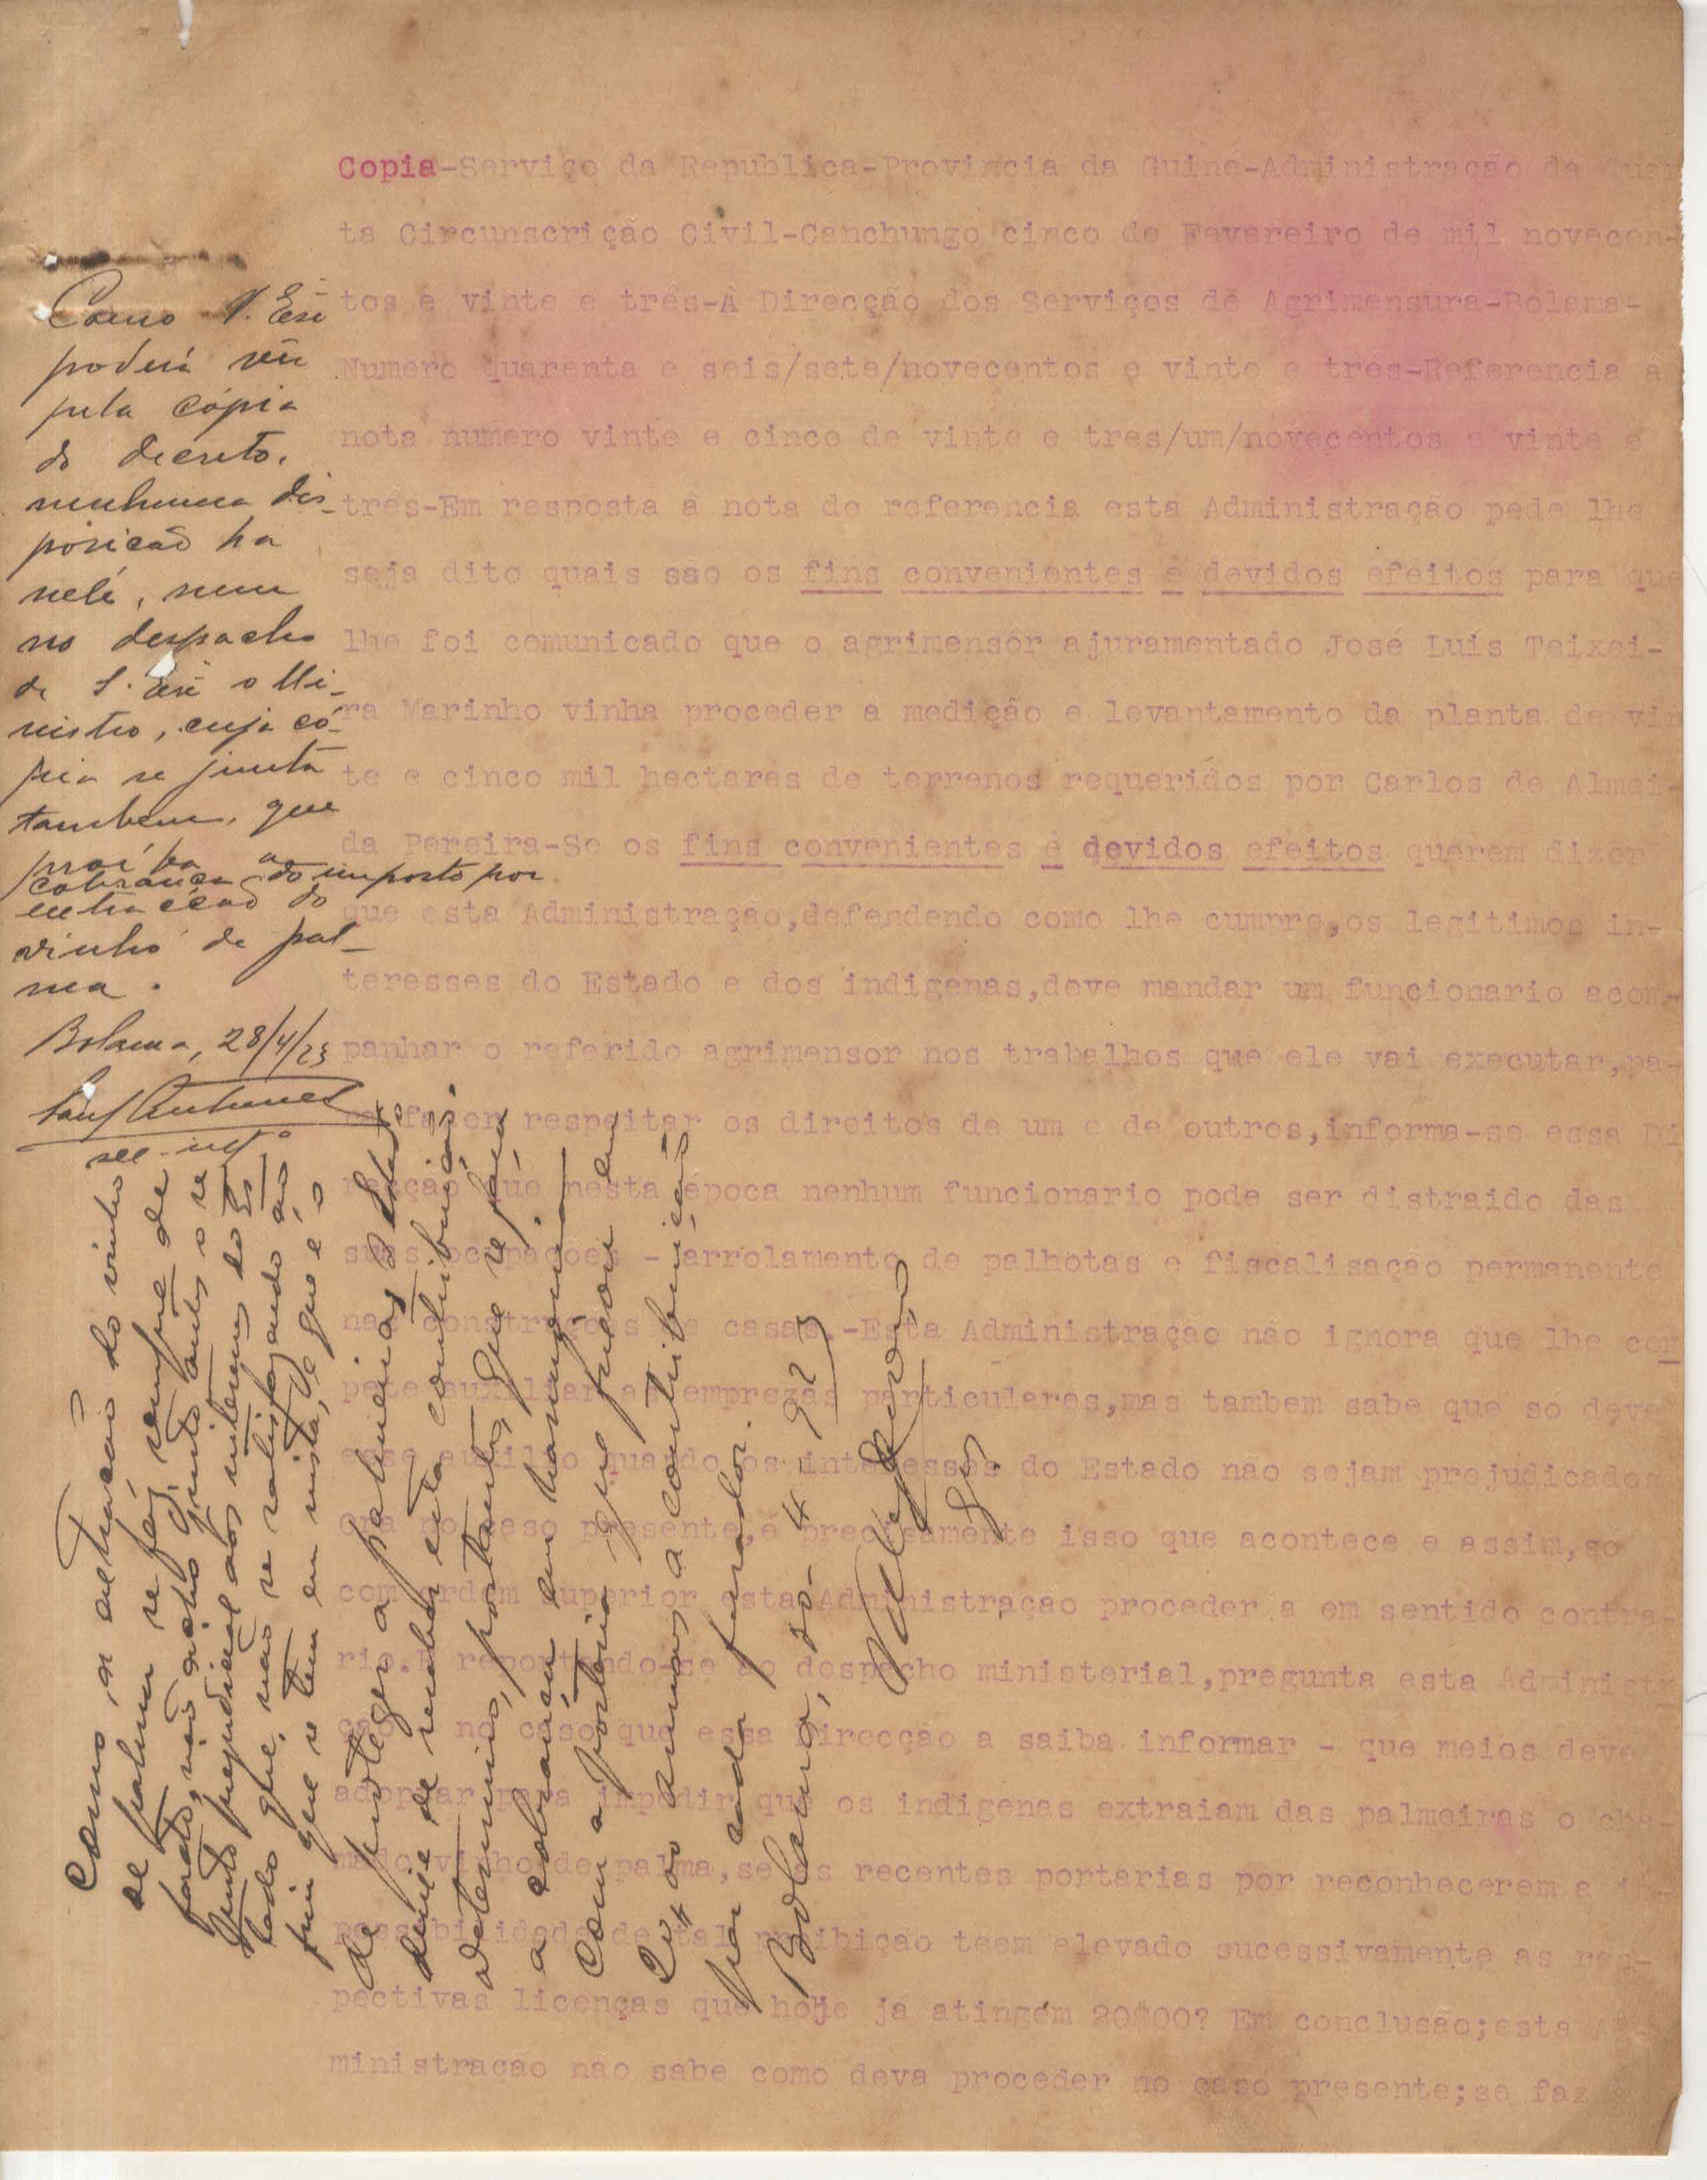 Copia-Serviço da Republica-Provincia da Guiné-Administração da Quar
ta Circunscrição Civil-Canchungo cinco de Fevereiro de mil novecen-
tos e vinte e três-À Direcção dos Serviços de Agrimensura-Bolama-
Numero quarenta e seis/sete/novecentos e vinte e tres-Referencia a
nota numero vinte e cinco de vinte e tres/um/novecentos e vinte e
tres-Em resposta á nota de referencia esta Administração pede lhe
seja dito quais sao os fins convenientes e devidos efeitos para que
lhe foi comunicado que o agrimensor ajuramentado José Luis Teixei-
ra Marinho vinha proceder a medição e levantamento da planta de vin
te e cinco mil hectares de terrenos requeridos por Carlos de Almei-
da Pereira-Se os fins convenientes e devidos efeitos querem dizer
que esta Administração,defendendo como lhe cumpre,os legitimos in-
teresses do Estado e dos indigenas,deve mandar um funcionario acom-
panhar o referido agrimensor nos trabalhos que ele vai executar,pa-
fazer respeitar os direitos de um e de outros,informa-se essa Di
recção que nesta época nenhum funcionario pode ser distraido das
suas ocupações - arrolamento de palhotas e fiscalisação permanente
nas construções de casas.-Esta Administração não ignora que lhe com
pete auxiliar as emprezas particulares,mas tambem sabe que só deve
esse auxilio quando os interesses do Estado não sejam prejudicados
Ora no caso presente,é precisamente isso que acontece e assim,só
com ordem superior esta Administração procederá em sentido contra-
rio.E reportando-se ao despacho ministerial,pregunta esta Administra
ção no caso que essa Direcção a saiba informar - que meios deve
adoptar para impedir que os indigenas extraiam das palmeiras o cha-
mado vinho de palma,se as recentes portarias por reconhecerem a im-
possibilidade de tal proibição teem elevado sucessivamente as res-
pectivas licenças que hoje já atingem 20$00? Em conclusão;esta Ad-
ministração não sabe como deva proceder no caso presente;se faz
Como V. Exª
poderá ver
pela cópia
do decreto,
nenhuma dis-
posição ha
nele, nem
no despacho
de S. Exª o Mi-
nistro, cuja có-
pia se junta
tambem, que
proíba a
cobrança do imposto por
extracção do
vinho de pal-
ma.
Bolama, 28/4/23
Antunes
Como a extracção do vinho
de palma se fez sempre de
facto, não acho
prejudicial aos interesses do Es-
tado que, não se satisfazendo ao
fim que se tem em vista, que é o
de proteger a palmeira, o Estado
deixe de receber esta contribuição
determino, portanto, que se faça
a cobrança em harmonia
com a portaria que fixou em
a contribuição
por cada furador.
Bolama, 30-4-923